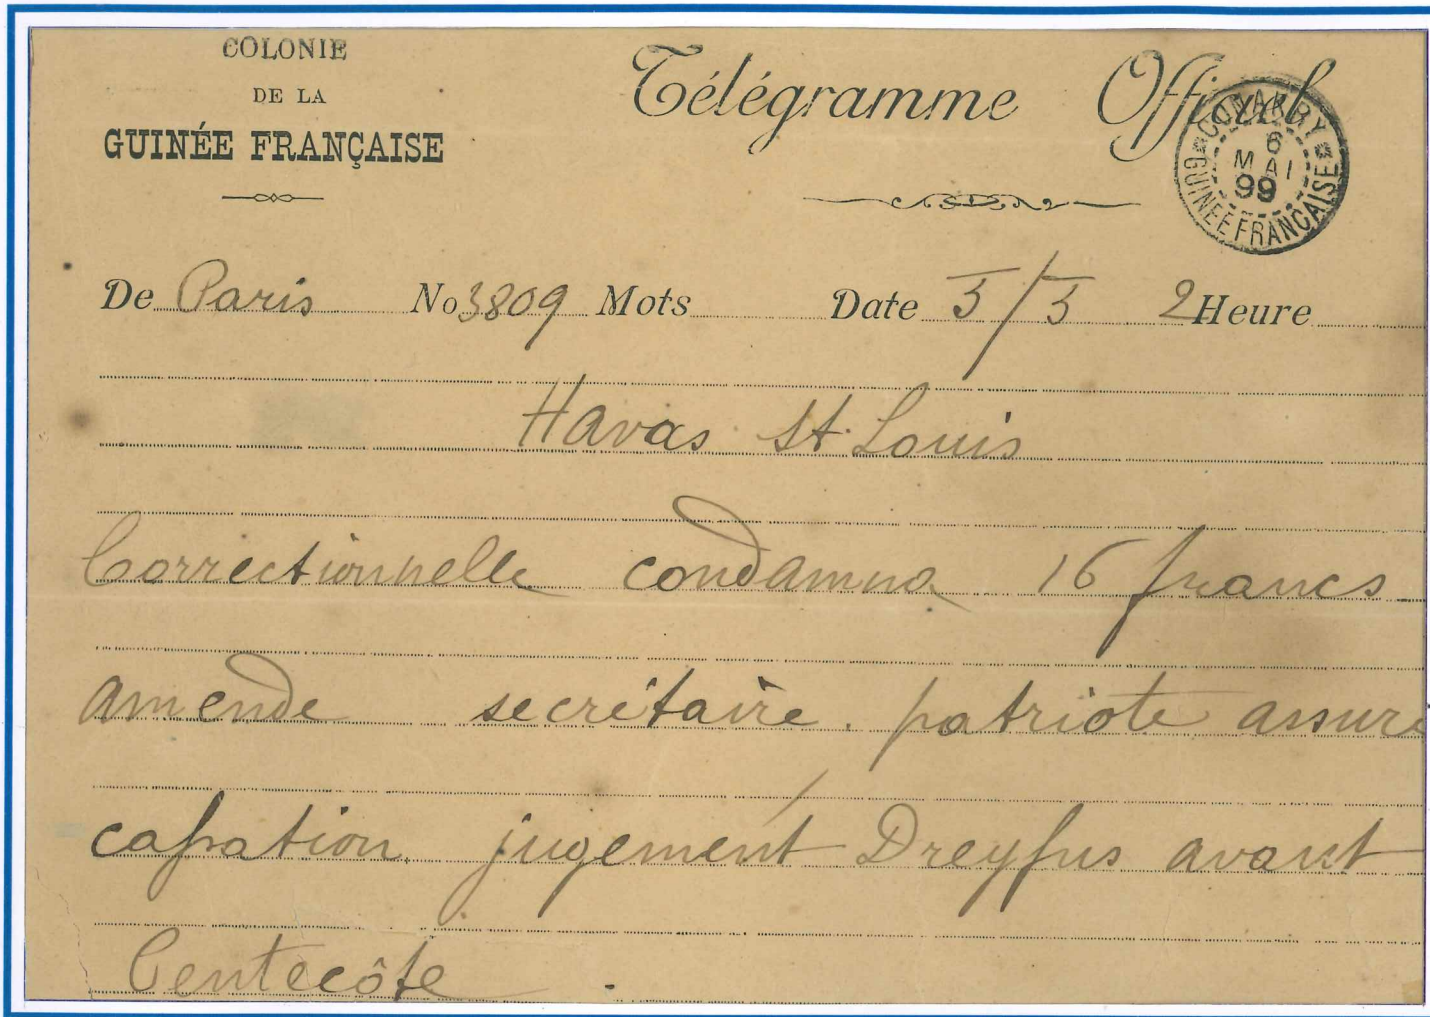 COLONIE
DE LA
GUINÉE FRANÇAISE
Télégramme Officiel
CONAKRY
6
MAI
99
GUINÉE FRANÇAISE
De Paris No 3809 Mots Date 5/5 2 Heure
Havas St. Louis
Correctionnelle condamna 16 francs
amende secrétaire patriote assure
cassation jugement Dreyfus avant
Pentecôte.